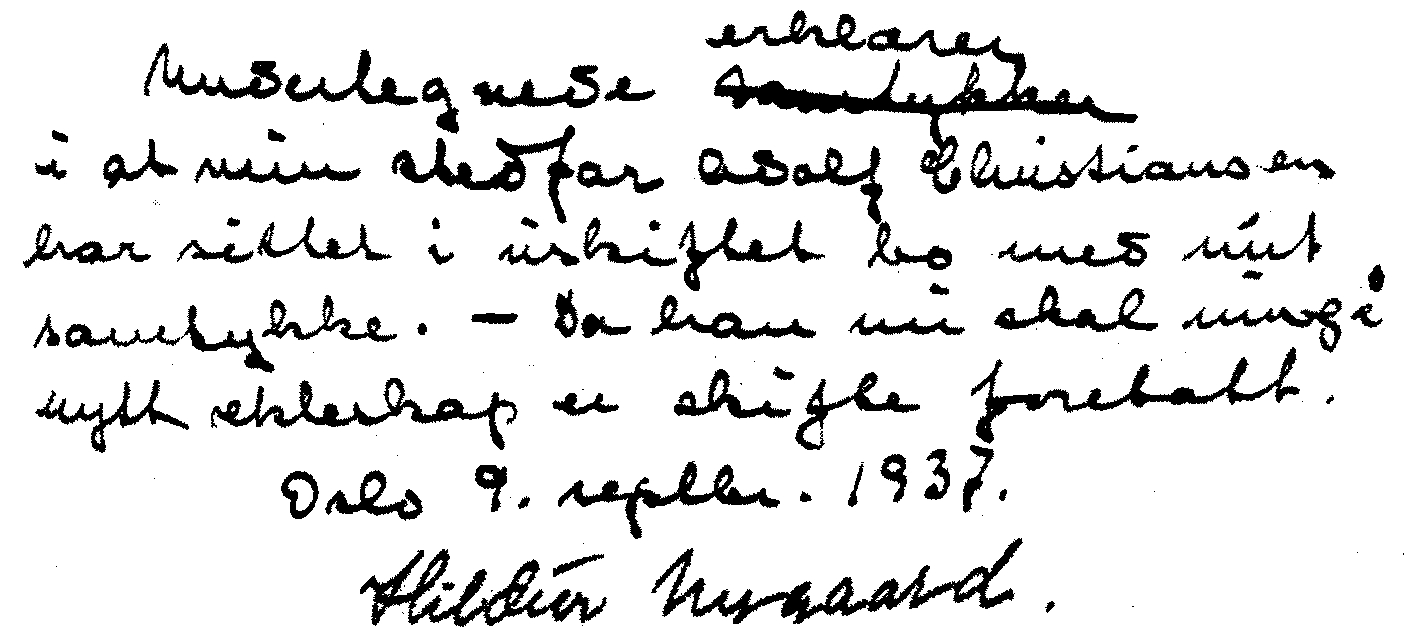 erklærer
Undertegnede samtykker
i at min stedfar Adolf Christiansen
har sittet i uskiftet bo med mitt
samtykke. - Da han nu skal inngå
nytt ekteskap er skifte foretatt.
Oslo 9. septbr. 1937.
Hildur Nygaard.